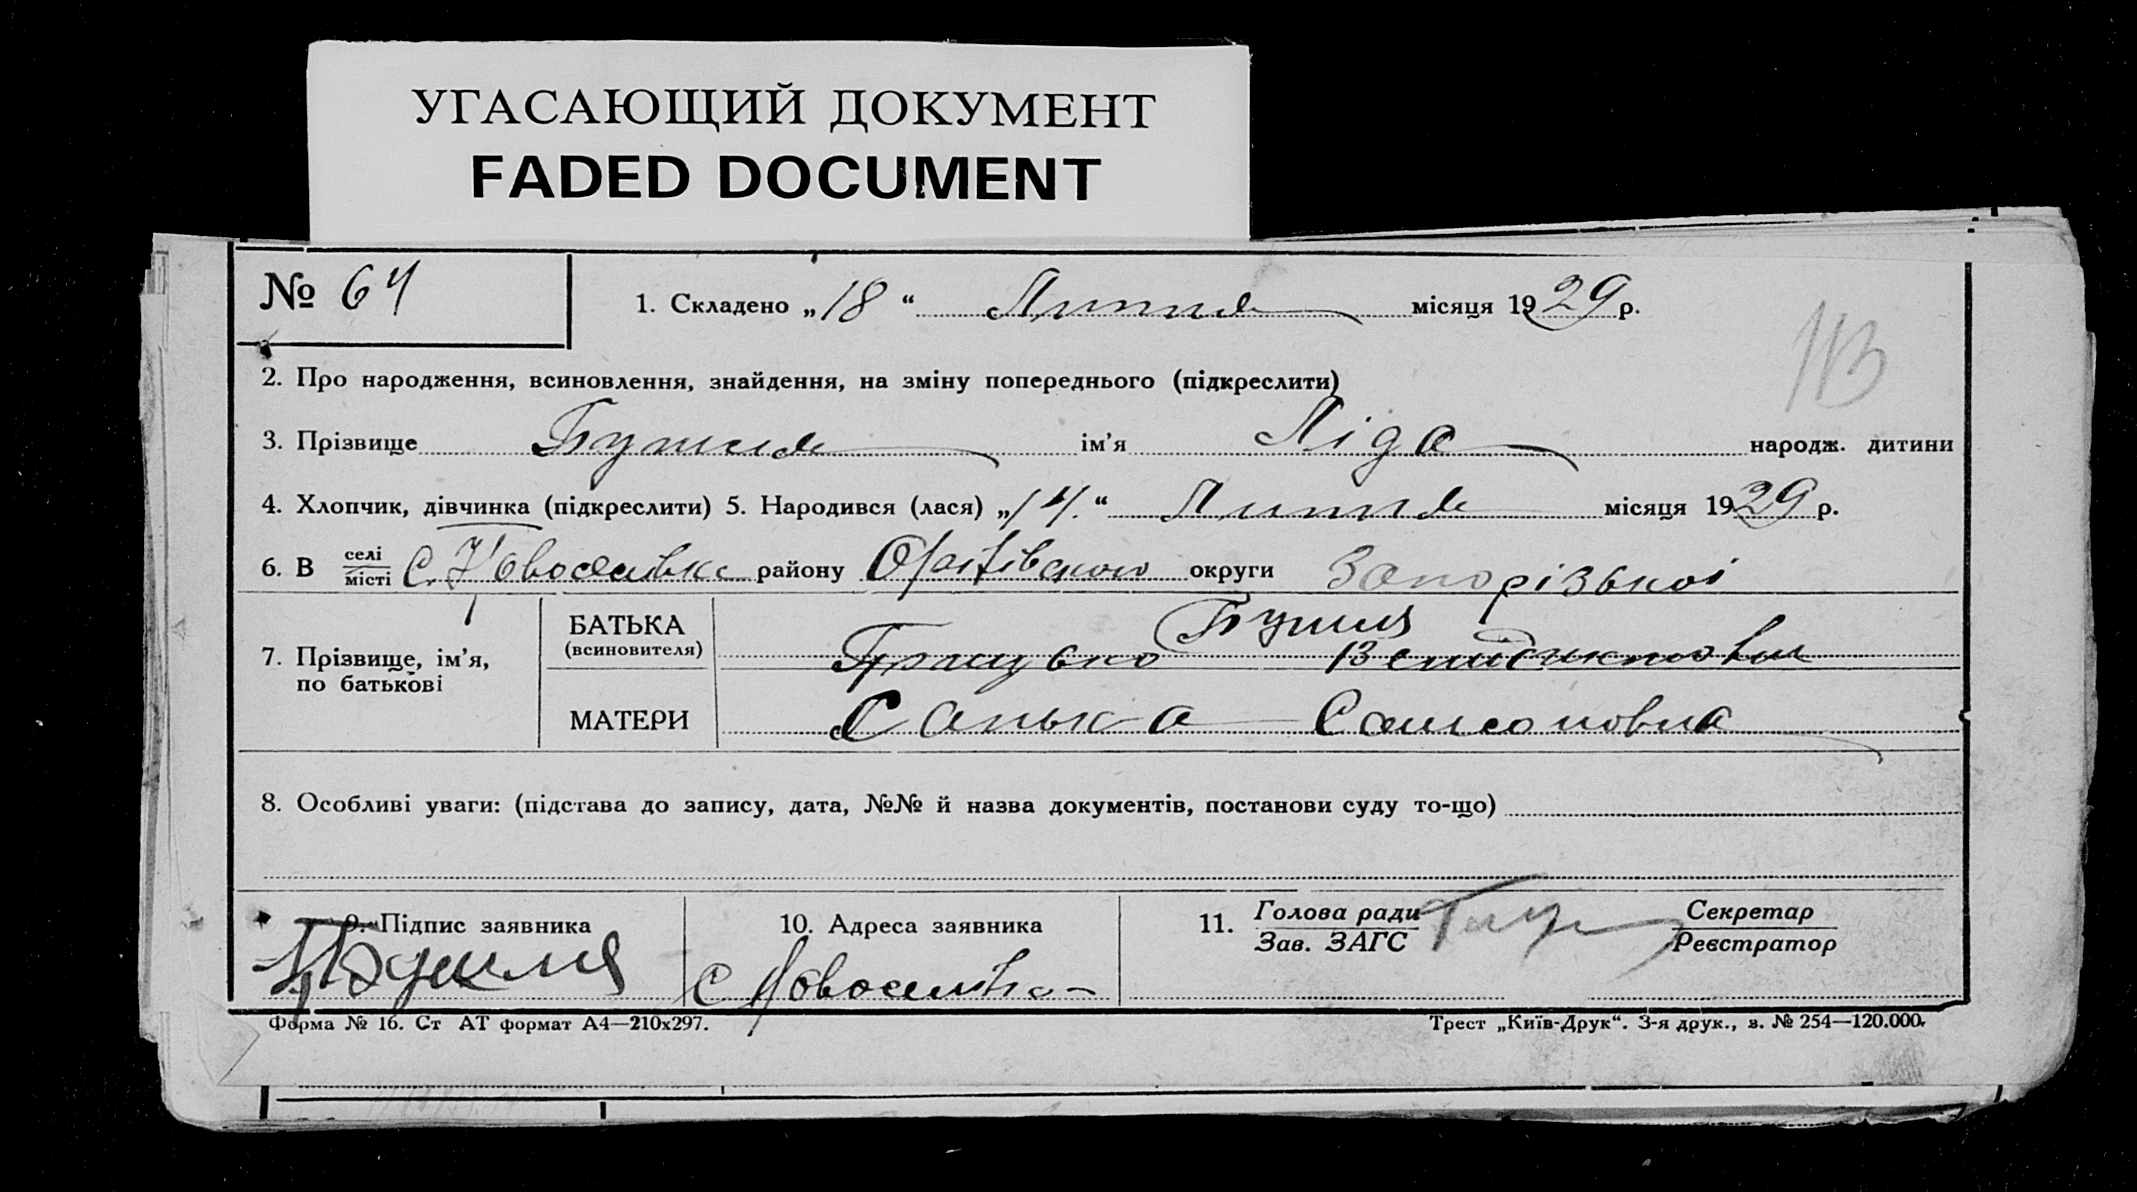 УГАСАЮЩИЙ ДОКУМЕНТ
FADED DOCUMENT
№ 64
1. Складено „18“ Липня місяця 1929 р.
2. Про народження, всиновлення, знайдення, на зміну попереднього (підкреслити)
3. Прізвище ім’я Ліда народж. дитини
4. Хлопчик, дівчинка (підкреслити) 5. Народився (лася) „14.“ Липня місяця 1929 р.
6. В селі/місті С. Новоселівка району Оріхівського округи Запорізької
7. Прізвище, ім’я, по батькові
БАТЬКА (всиновителя) Грицько
МАТЕРИ Санька Самсоновна
8. Особливі уваги: (підстава до запису, дата, №№ й назва документів, постанови суду то-що)
9. Підпис заявника
10. Адреса заявника
с Новоселівка
11. Голова ради/Зав. ЗАГС Секретар/Реєстратор
Форма № 16. Ст АТ формат А4—210х297.
Трест „Київ-Друк“. 3-я друк., з. № 254—120.000.